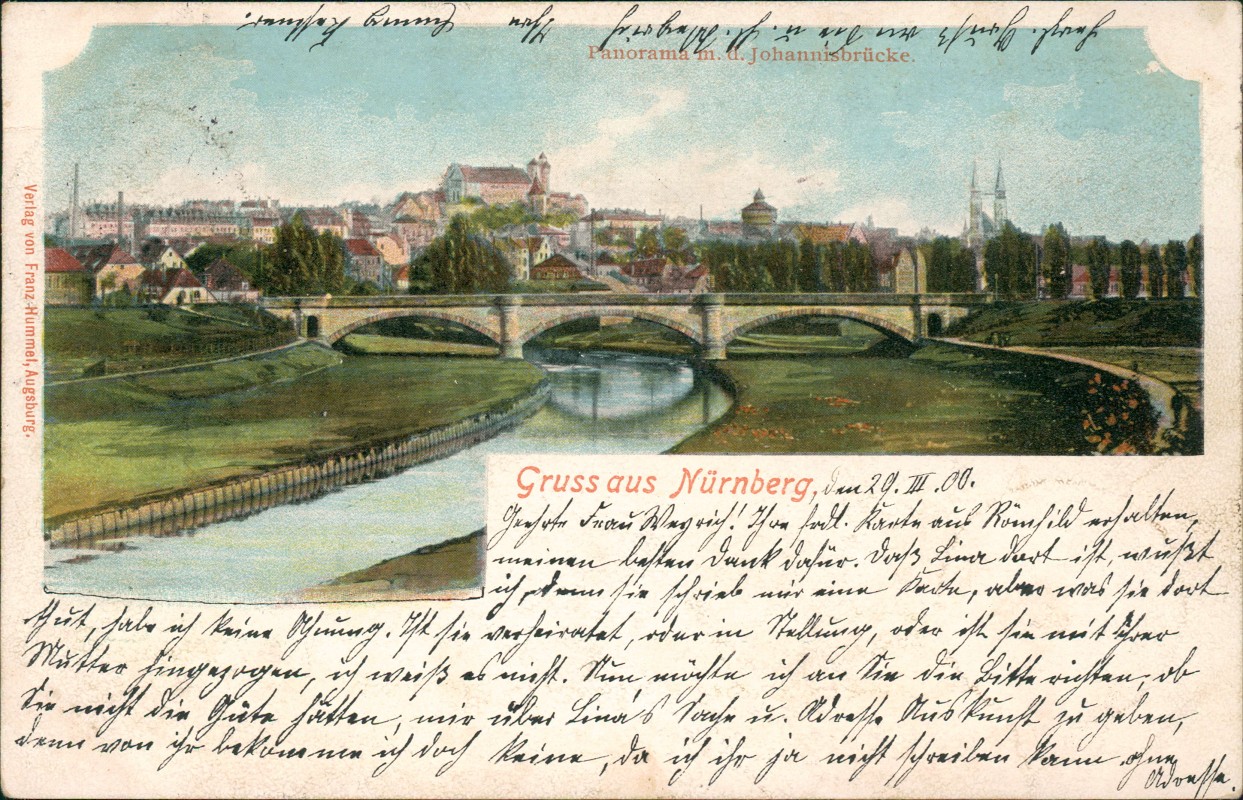 Panorama m. d. Johannisbrücke.
Verlag von Franz Hummel, Augsburg.
Gruss aus Nürnberg, den 29. III. 00.
Geehrte Frau Weyrich! Ihre frdl. Karte aus Römhild erhalten,
meinen besten Dank dafür. Daß Lina dort ist, wußt
ich, denn sie schrieb mir eine Karte, aber was sie dort
thut, habe ich keine Ahnung. Ist sie verheiratet, oder in Stellung, oder ist sie mit Ihrer
Mutter hingezogen, ich weiß es nicht. Nun möchte ich an Sie die Bitte richten, ob
Sie nicht die Güte hätten, mir über Lina's Sache u. Adresse Auskunft zu geben,
denn von ihr bekomme ich doch keine, da ich ihr ja nicht schreiben kann ohne
Adresse.
Herzl. Gruß an Sie u. H.
Ihre Emma